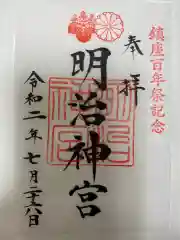 鎮座百年祭記念
奉拝
明治神宮
令和二年七月二十六日